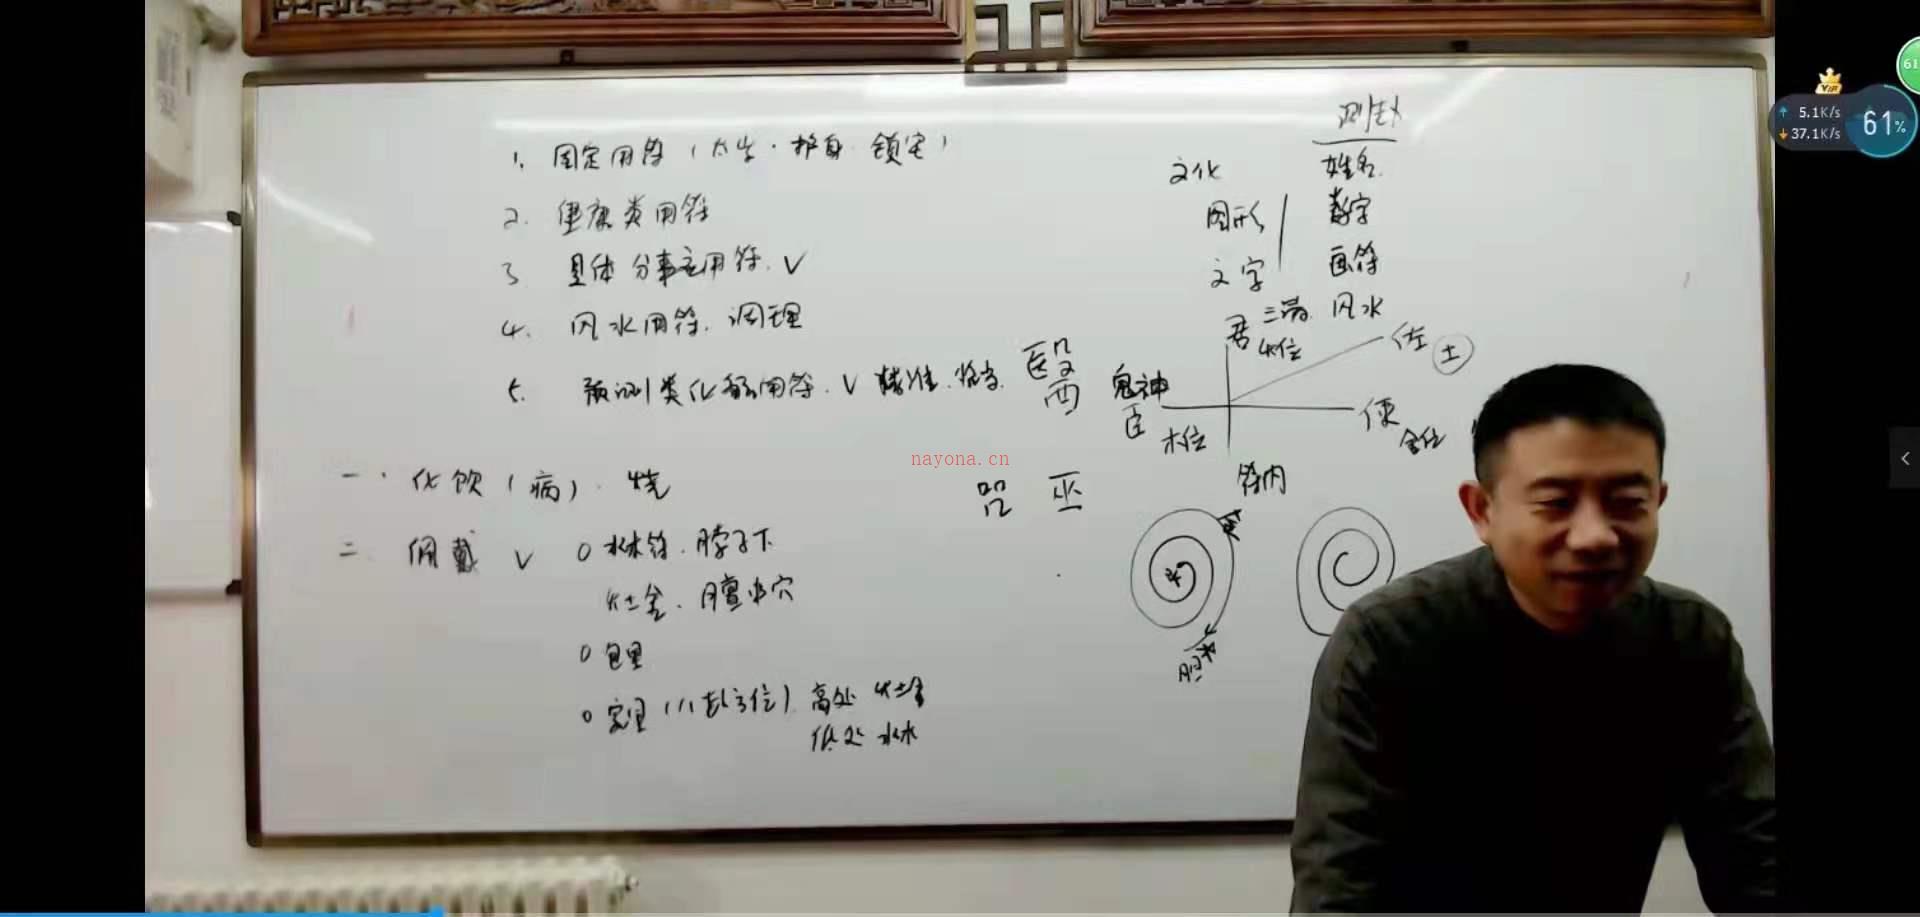 1. 固定用符（太岁·护身 镇宅）
2. 健康类用符
3. 具体分事应用符. V
4. 风水用符. 调理
5. 预测类化解用符. V 精准.
醫
一. 化饮（病）. 烧
二. 佩戴 V O 水木符. 脖子下
火土金. 膻中穴
O 包里
O 家里（八卦方位）. 高处 火土金
低处 水木
咒 巫
测卦
文化 姓名
图形 数字
文字 画符
风水
君 火位
佐 土
鬼神
臣 木位
使 金位
符内
胆
nayona.cn
VIP
5.1K/s
37.1K/s
61%
61